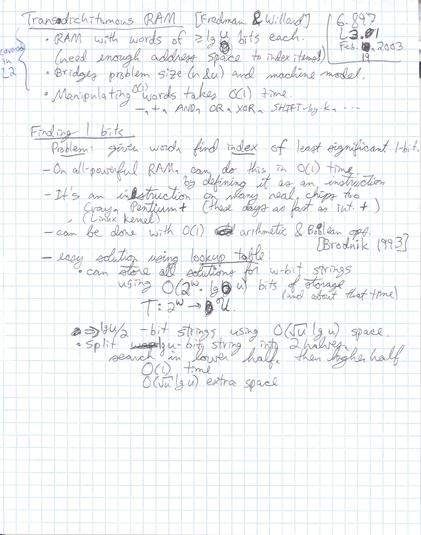 Transdichotomous RAM [Fredman & Willard]
6.897
L3.01
Feb. 19, 2003
covered in L2
• RAM with words of ≥ lg u bits each.
(need enough address space to index items)
• Bridges problem size (n & u) and machine model.
• Manipulating O(1) words takes O(1) time.
-, +, AND, OR, XOR, SHIFT-by-k, ...
Finding 1 bits
Problem: given word, find index of least significant 1-bit.
– On all-powerful RAM, can do this in O(1) time
by defining it as an instruction
– It's an instruction on many real chips too
Cray, Pentium+ (these days as fast as int. +)
(Linux kernel)
– can be done with O(1) arithmetic & Boolean ops.
[Brodnik 1993]
– easy solution using lookup table:
• can store all solutions for w-bit strings
using O(2^w · lg u) bits of storage
(and about that time)
T: 2^w → u.
• ⇒ lg u/2 -bit strings using O(√u lg u) space.
• Split lg u-bit string into 2 halves.
search in lower half, then higher half
O(1) time
O(√u lg u) extra space